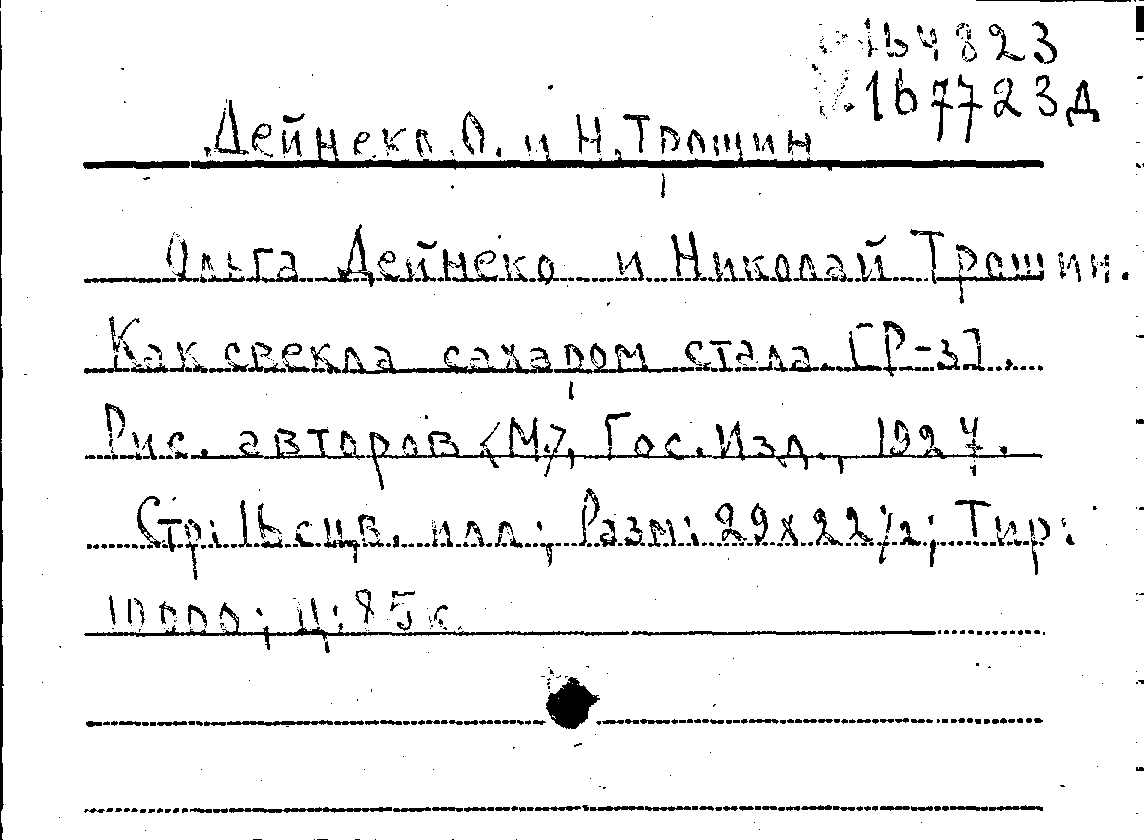 164823
167723д
Дейнеко О. и Н. Трошин
Ольга Дейнеко и Николай Трошин.
Как свекла сахаром стала. [Р-з].
Рис. авторов <М.>, Гос. Изд., 1927.
Стр: 16 сцв. илл; Разм: 29х22½; Тир:
10000; Ц: 85к.